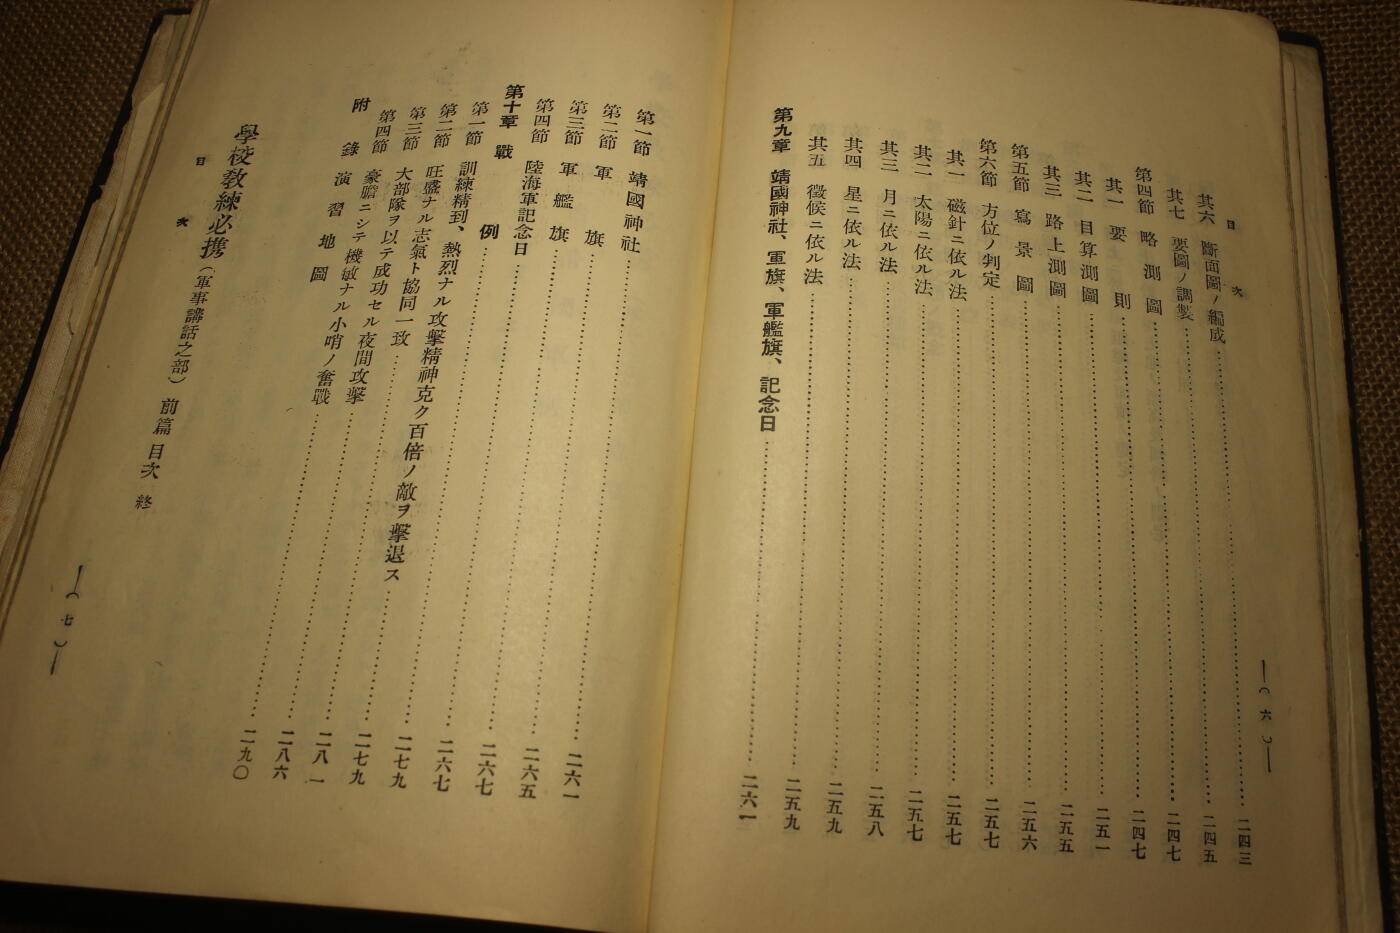 目次
其六 斷面圖ノ編成 二四三
其七 要圖ノ調製 二四五
第四節 略測圖 二四七
其一 要則 二四七
其二 目算測圖 二五一
其三 路上測圖 二五五
第五節 寫景圖 二五六
第六節 方位ノ判定 二五七
其一 磁針ニ依ル法 二五七
其二 太陽ニ依ル法 二五七
其三 月ニ依ル法 二五八
其四 星ニ依ル法 二五九
其五 徵候ニ依ル法 二五九
第九章 靖國神社、軍旗、軍艦旗、記念日 二六一
(六)
第一節 靖國神社 二六一
第二節 軍旗 二六五
第三節 軍艦旗 二六七
第四節 陸海軍記念日 二六七
第十章 戰例 二七九
第一節 訓練精到、熱烈ナル攻擊精神克ク百倍ノ敵ヲ擊退ス 二七九
第二節 旺盛ナル志氣ト協同一致 二八一
第三節 大部隊ヲ以テ成功セル夜間攻擊 二八六
第四節 豪膽ニシテ機敏ナル小哨ノ奮戰 二九〇
附錄 演習地圖
學校敎練必携(軍事講話之部) 前篇 目次 終
目次
(七)